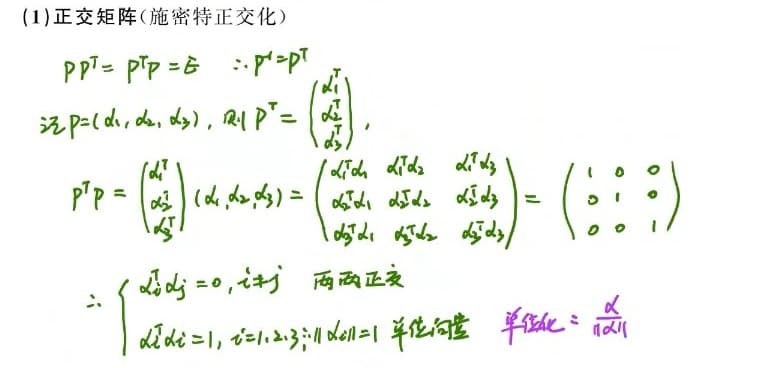 (1)正交矩阵(施密特正交化)
PPᵀ = PᵀP = E ∴ P⁻¹ = Pᵀ
记P=(α₁, α₂, α₃), 则 Pᵀ = (α₁ᵀ α₂ᵀ α₃ᵀ),
PᵀP = (α₁ᵀ α₂ᵀ α₃ᵀ) (α₁, α₂, α₃) = (α₁ᵀα₁ α₁ᵀα₂ α₁ᵀα₃ α₂ᵀα₁ α₂ᵀα₂ α₂ᵀα₃ α₃ᵀα₁ α₃ᵀα₂ α₃ᵀα₃) = (1 0 0 0 1 0 0 0 1)
∴ { αᵢᵀαⱼ = 0, i≠j 两两正交
αᵢᵀαᵢ = 1, i=1,2,3; ∴ ||αᵢ||=1 单位向量 单位化 = α/||α||